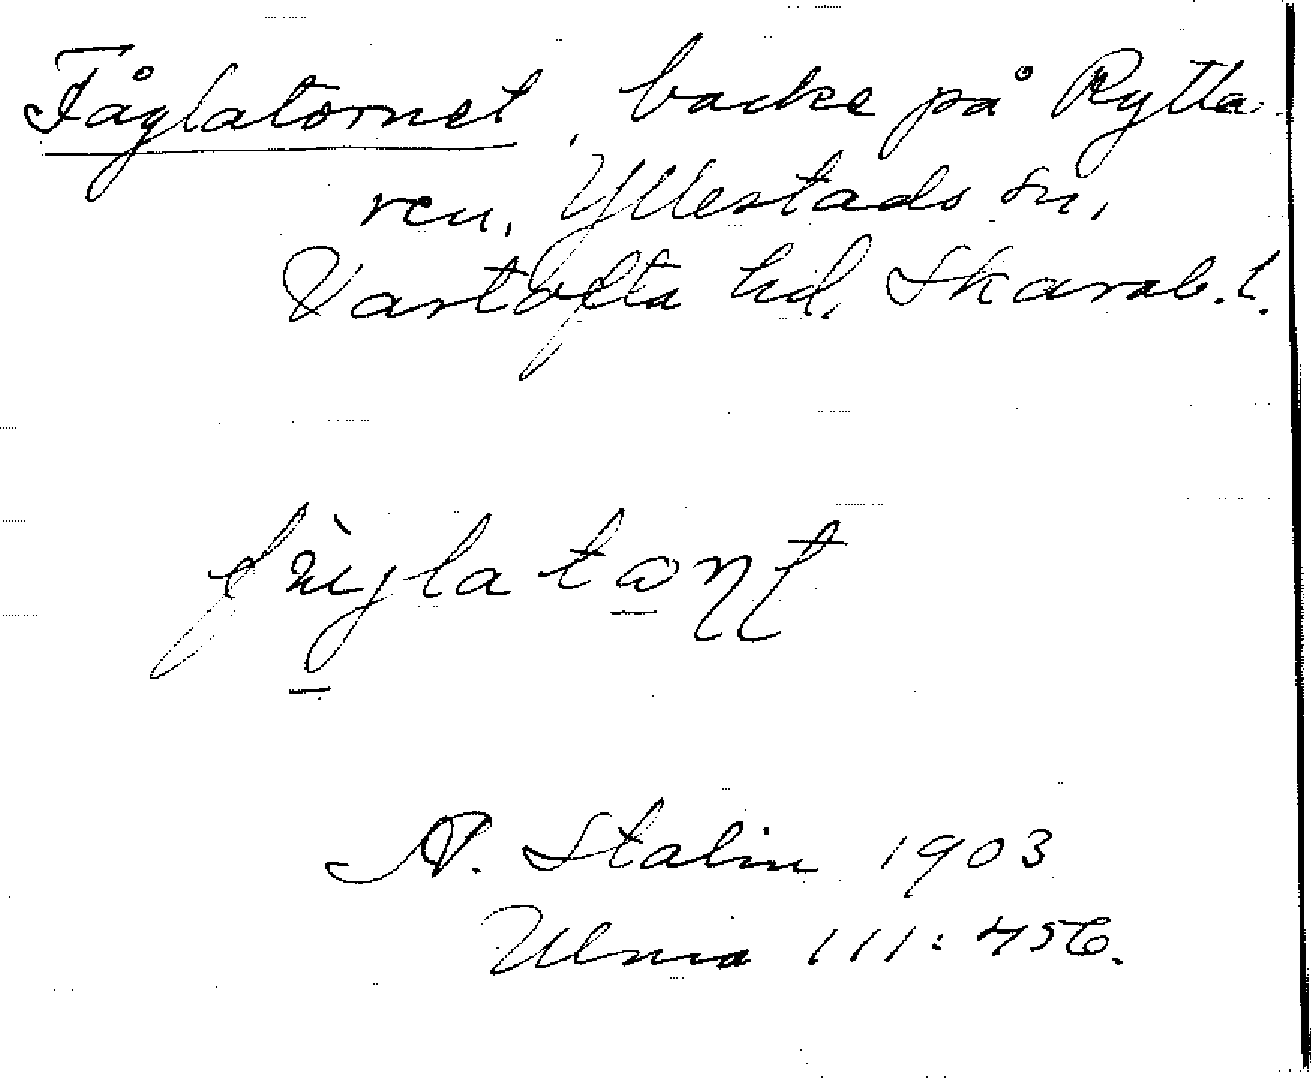 Fåglatornet, backe på Rytta-
ren, Yllestads sn,
Vartofta hd, Skarab. l.
fùgla tɷn̨t̨
A. Stalin 1903
Ulma 111:456.